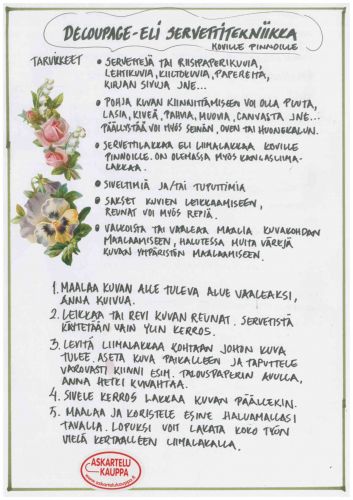 DECOUPAGE - ELI SERVETTITEKNIIKKA
KOVILLE PINNOILLE
TARVIKKEET
• SERVETTEJÄ TAI RIISIPAPERIKUVIA,
LEHTIKUVIA, KIILTOKUVIA, PAPEREITA,
KIRJAN SIVUJA JNE...
• POHJA KUVAN KIINNITTÄMISEEN VOI OLLA PUUTA,
LASIA, KIVEÄ, PAHVIA, MUOVIA, CANVASTA JNE...
PÄÄLLYSTÄÄ VOI MYÖS SEINÄN, OVEN TAI HUONEKALUN.
• SERVETTILAKKAA ELI LIIMALAKKAA KOVILLE
PINNOILLE. ON OLEMASSA MYÖS KANGASLIIMA-
LAKKAA.
• SIVELTIMIÄ JA/TAI TUPUTTIMIA
• SAKSET KUVIEN LEIKKAAMISEEN,
REUNAT VOI MYÖS REPIÄ.
• VALKOISTA TAI VAALEAA MAALIA KUVAKOHDAN
MAALAAMISEEN, HALUTESSA MUITA VÄREJÄ
KUVAN YMPÄRISTÖN MAALAAMISEEN.
1. MAALAA KUVAN ALLE TULEVA ALUE VAALEAKSI,
ANNA KUIVUA.
2. LEIKKAA TAI REVI KUVAN REUNAT. SERVETISTÄ
KÄYTETÄÄN VAIN YLIN KERROS.
3. LEVITÄ LIIMALAKKAA KOHTAAN JOHON KUVA
TULEE. ASETA KUVA PAIKALLEEN JA TAPUTTELE
VAROVASTI KIINNI ESIM. TALOUSPAPERIN AVULLA,
ANNA HETKI KUIVAHTAA.
4. SIVELE KERROS LAKKAA KUVAN PÄÄLLEKIN.
5. MAALAA JA KORISTELE ESINE HALUAMALLASI
TAVALLA. LOPUKSI VOIT LAKATA KOKO TYÖN
VIELÄ KERTAALLEEN LIIMALAKALLA.
ASKARTELU
KAUPPA
www.askartelukauppa.fi